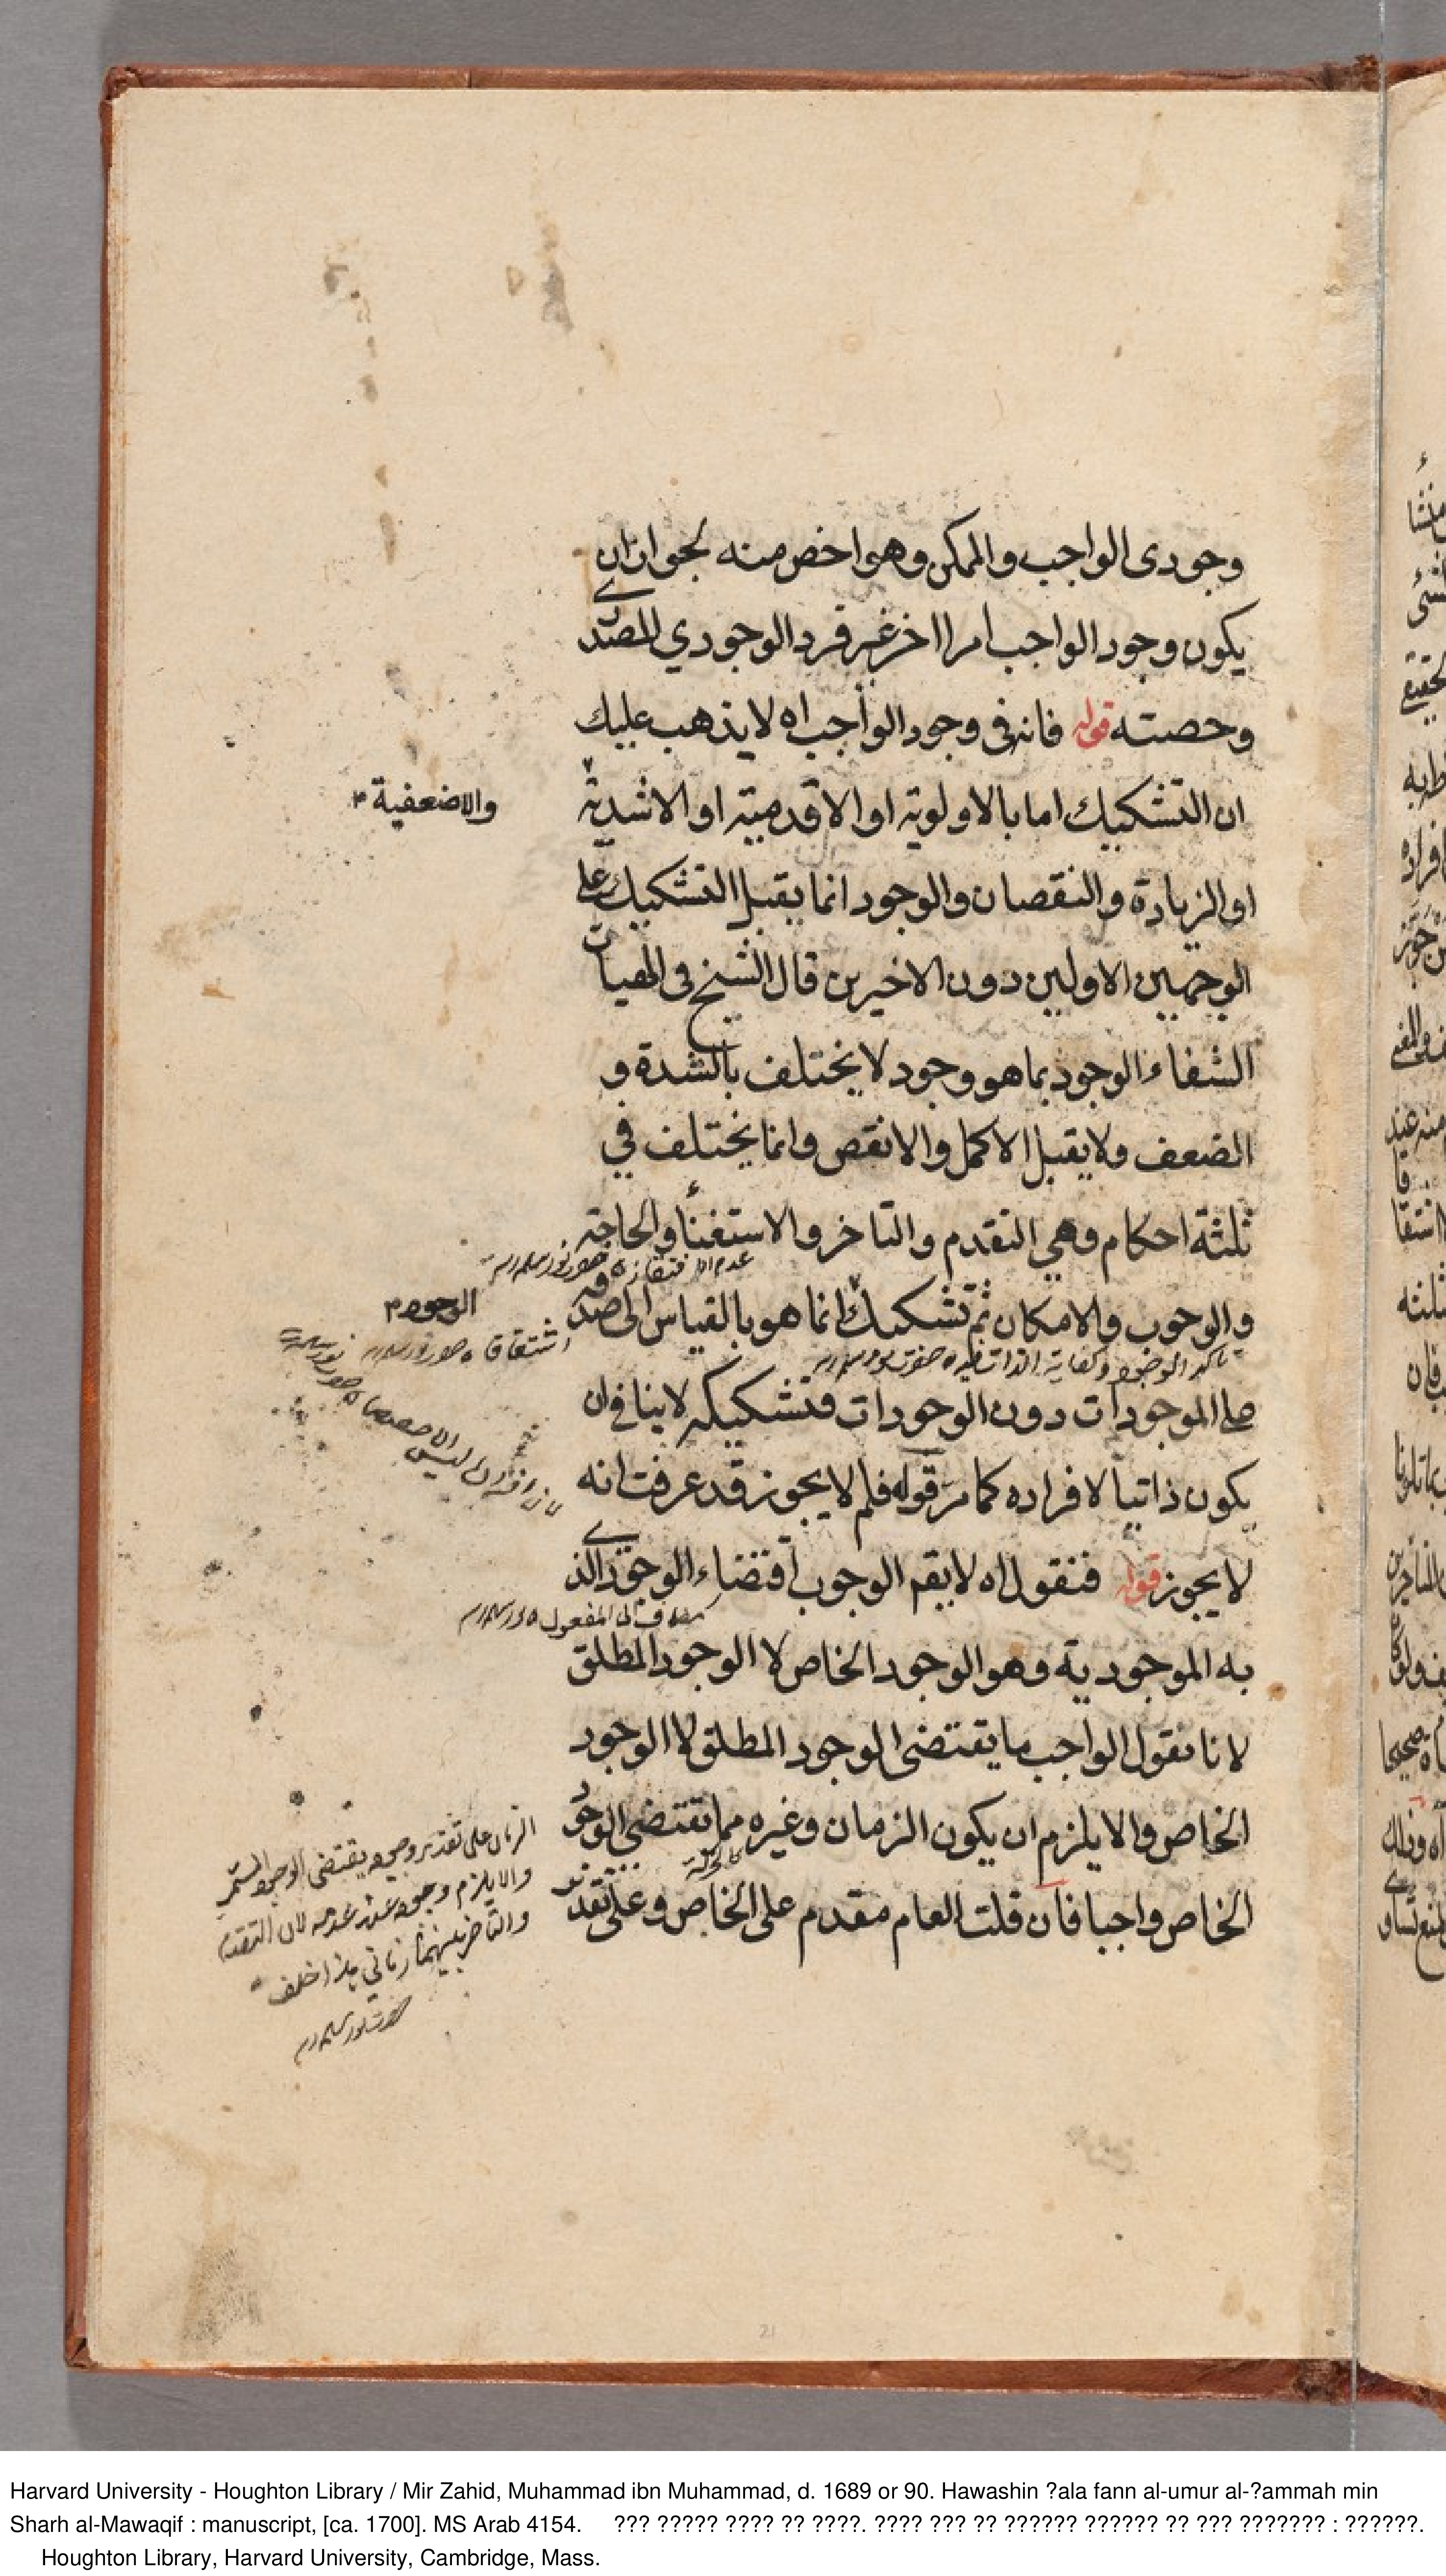 وجودى الواجب والممكن وهو اخص منه لجواز ان
يكون وجود الواجب امرا اخر غير فرد الوجودي المصدرى
وحصته قوله فانه فى وجود الواجب اه لا يذهب عليك
ان التشكيك اما بالاولوية او الاقدمية او الاشدية
والاضعفية
او الزيادة والنقصان والوجود انما يقبل التشكيك على
الوجهين الاولين دون الاخيرين قال الشيخ فى الهيات
الشفاء الوجود بما هو وجود لا يختلف بالشدة و
الضعف ولا يقبل الاكمل والانقص وانما يختلف في
ثلثة احكام وهي التقدم والتاخر والاستغناء والحاجة
والوجوب والامكان ثم تشكيك انما هو بالقياس الى صدقه
الوجود
اشتقاقا
على الموجودات دون الوجودات فتشكيكه لا ينافى ان
يكون ذاتيا لافراده كما مر قوله فلم لا يجوز قد عرفت انه
لا يجوز قوله فنقول اه لا يقم الوجوب اقتضاء الوجود الذى
مضاف الى المفعول
به الموجودية وهو الوجود الخاص لا الوجود المطلق
لانا نقول الواجب ما يقتضى الوجود المطلق لا الوجود
الخاص والا يلزم ان يكون الزمان وغيره مما يقتضى الوجود
كالحركة
الخاص واجبا فان قلت العام مقدم على الخاص وعلى تقدير
الزمان على تقدير وجوده يقتضى الوجود المستمر
والا يلزم وجوده عند عدمه لان التقدم
والتاخر بينهما زماني هذا خلف
21
Harvard University - Houghton Library / Mir Zahid, Muhammad ibn Muhammad, d. 1689 or 90. Hawashin ?ala fann al-umur al-?ammah min
Sharh al-Mawaqif : manuscript, [ca. 1700]. MS Arab 4154. ??? ????? ???? ?? ????. ???? ??? ?? ?????? ?????? ?? ??? ??????? : ??????.
Houghton Library, Harvard University, Cambridge, Mass.